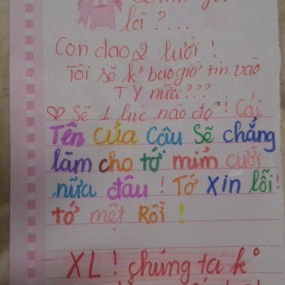 lại ?....
Con dao 2 lưỡi !
Tôi sẽ k° bao giờ tin vào
TY nữa ???
Sẽ 1 lúc nào đó ! Cái
Tên của Cậu Sẽ chẳng
làm cho tớ mỉm cười
nữa đâu ! Tớ Xin lỗi !
tớ mệt Rồi !
XL ! chúng ta k°